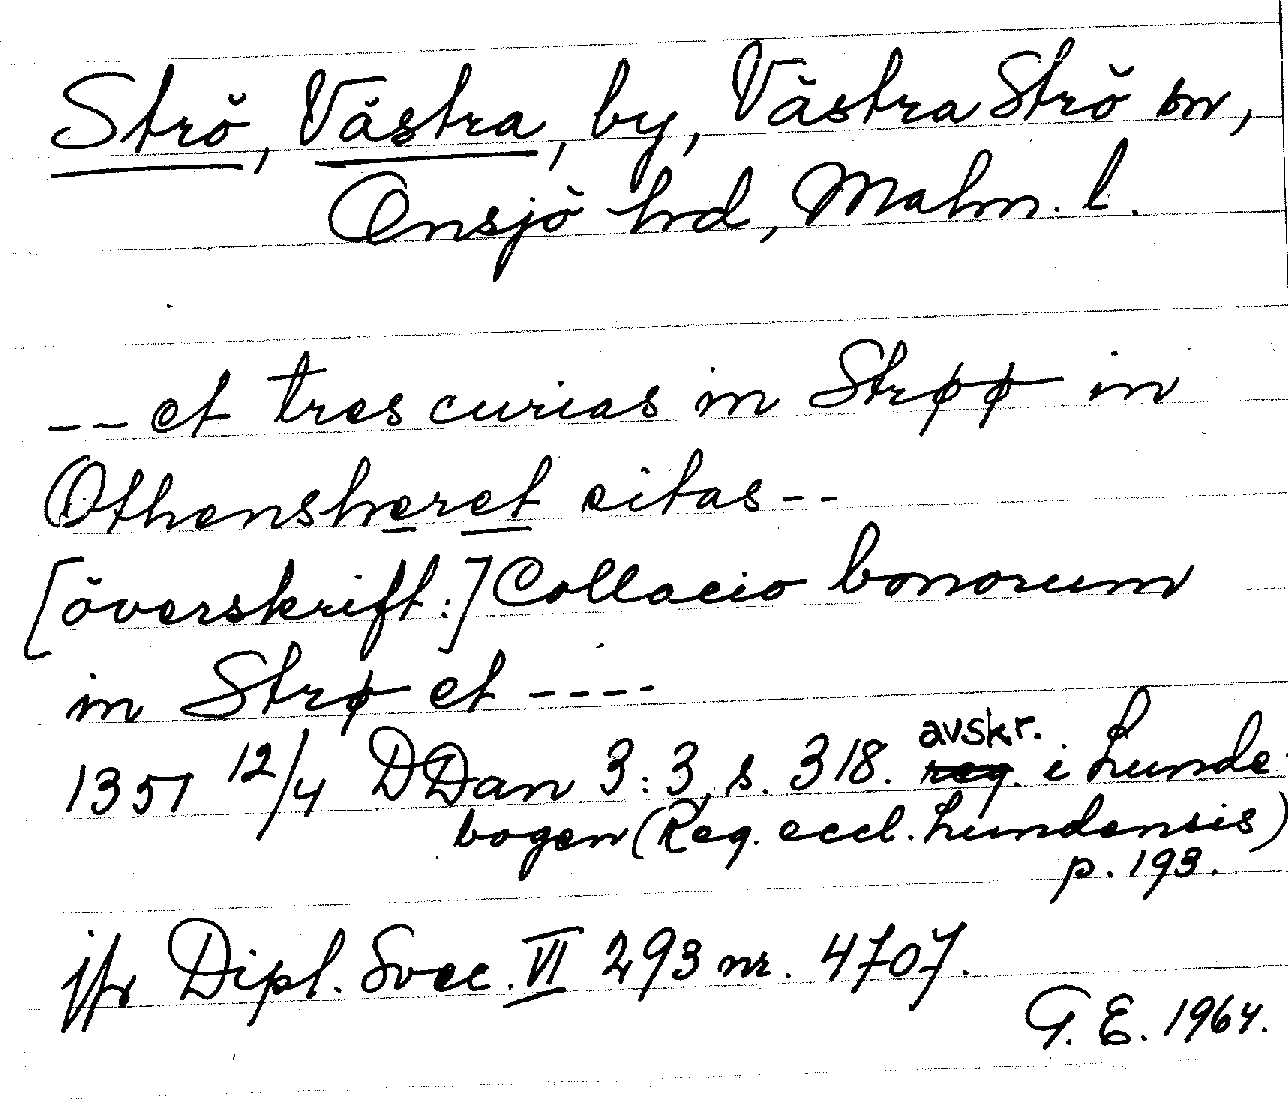 Strö, Västra, by, Västra Strö sn,
Onsjö hrd, Malm. l.
-- et tres curias in Strøø in
Othensheret citas --
[överskrift:] Collacio bonorum
in Strø et ----
1351 12/4 DDan 3:3, s. 318. avskr. i Lunde-
bogen (Reg. eccl. Lundensis)
p. 193.
jfr Dipl. Svec. VI 293 nr. 4707.
G. E. 1964.